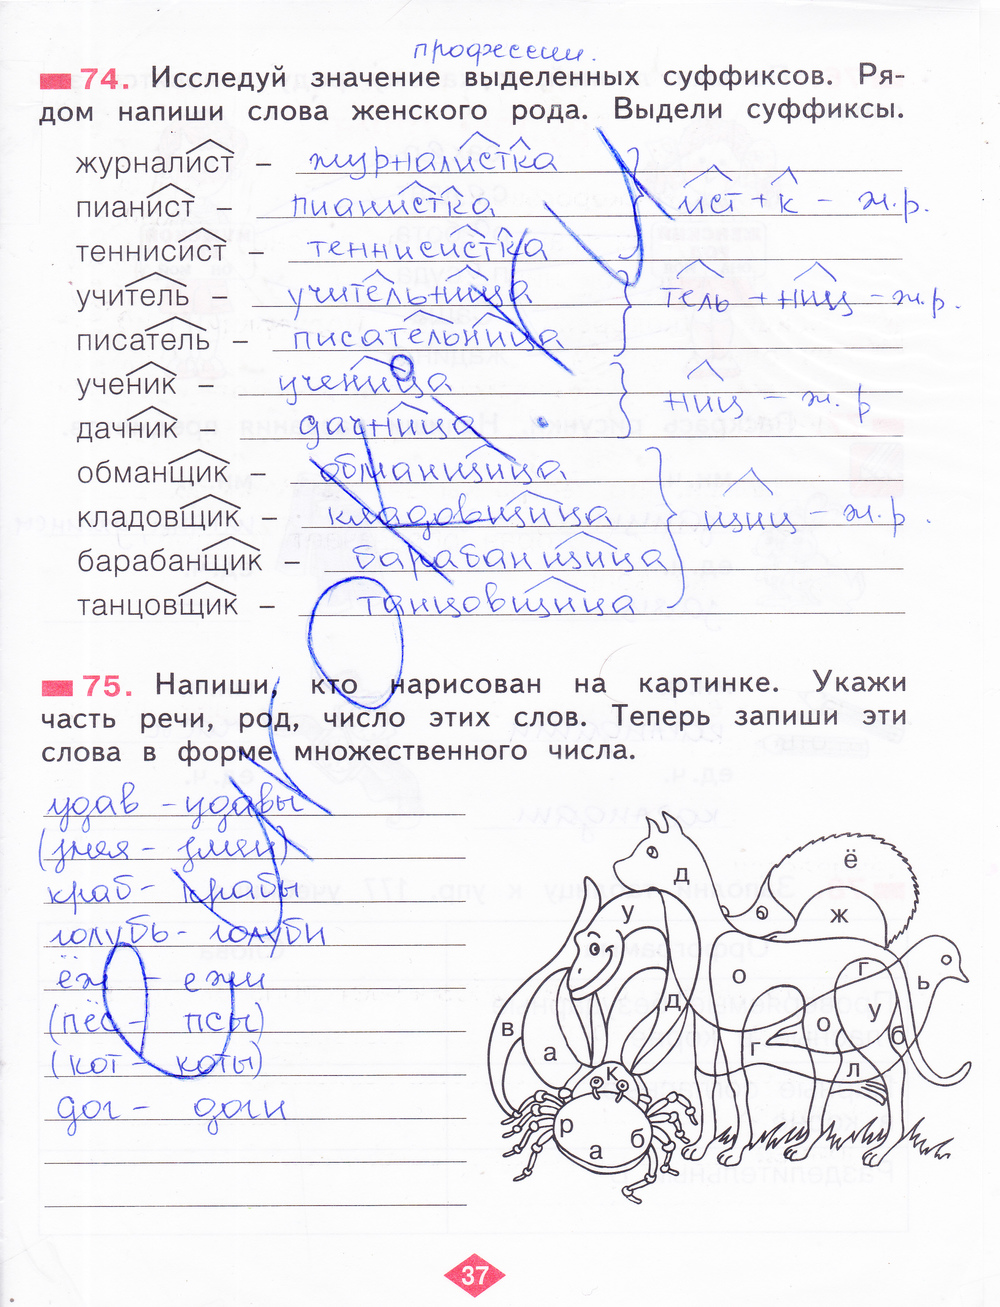 профессии.
74. Исследуй значение выделенных суффиксов. Ря-
дом напиши слова женского рода. Выдели суффиксы.
журналист – журналистка
пианист – пианистка ист + к – ж.р.
теннисист – теннисистка
учитель – учительница тель + ниц – ж.р.
писатель – писательница
ученик – ученица
ниц – ж.р
дачник – дачница
обманщик – обманщица
кладовщик – кладовщица щиц – ж.р.
барабанщик – барабанщица
танцовщик – танцовщица
75. Напиши, кто нарисован на картинке. Укажи
часть речи, род, число этих слов. Теперь запиши эти
слова в форме множественного числа.
удав – удавы
(змея – змеи)
краб – крабы
голубь – голуби
ёж – ежи
(пёс – псы)
(кот – коты)
дог – доги
д
ё
ж
у
д
о
г
в
а
г
о
у
ь
б
л
к
р
а
б
37